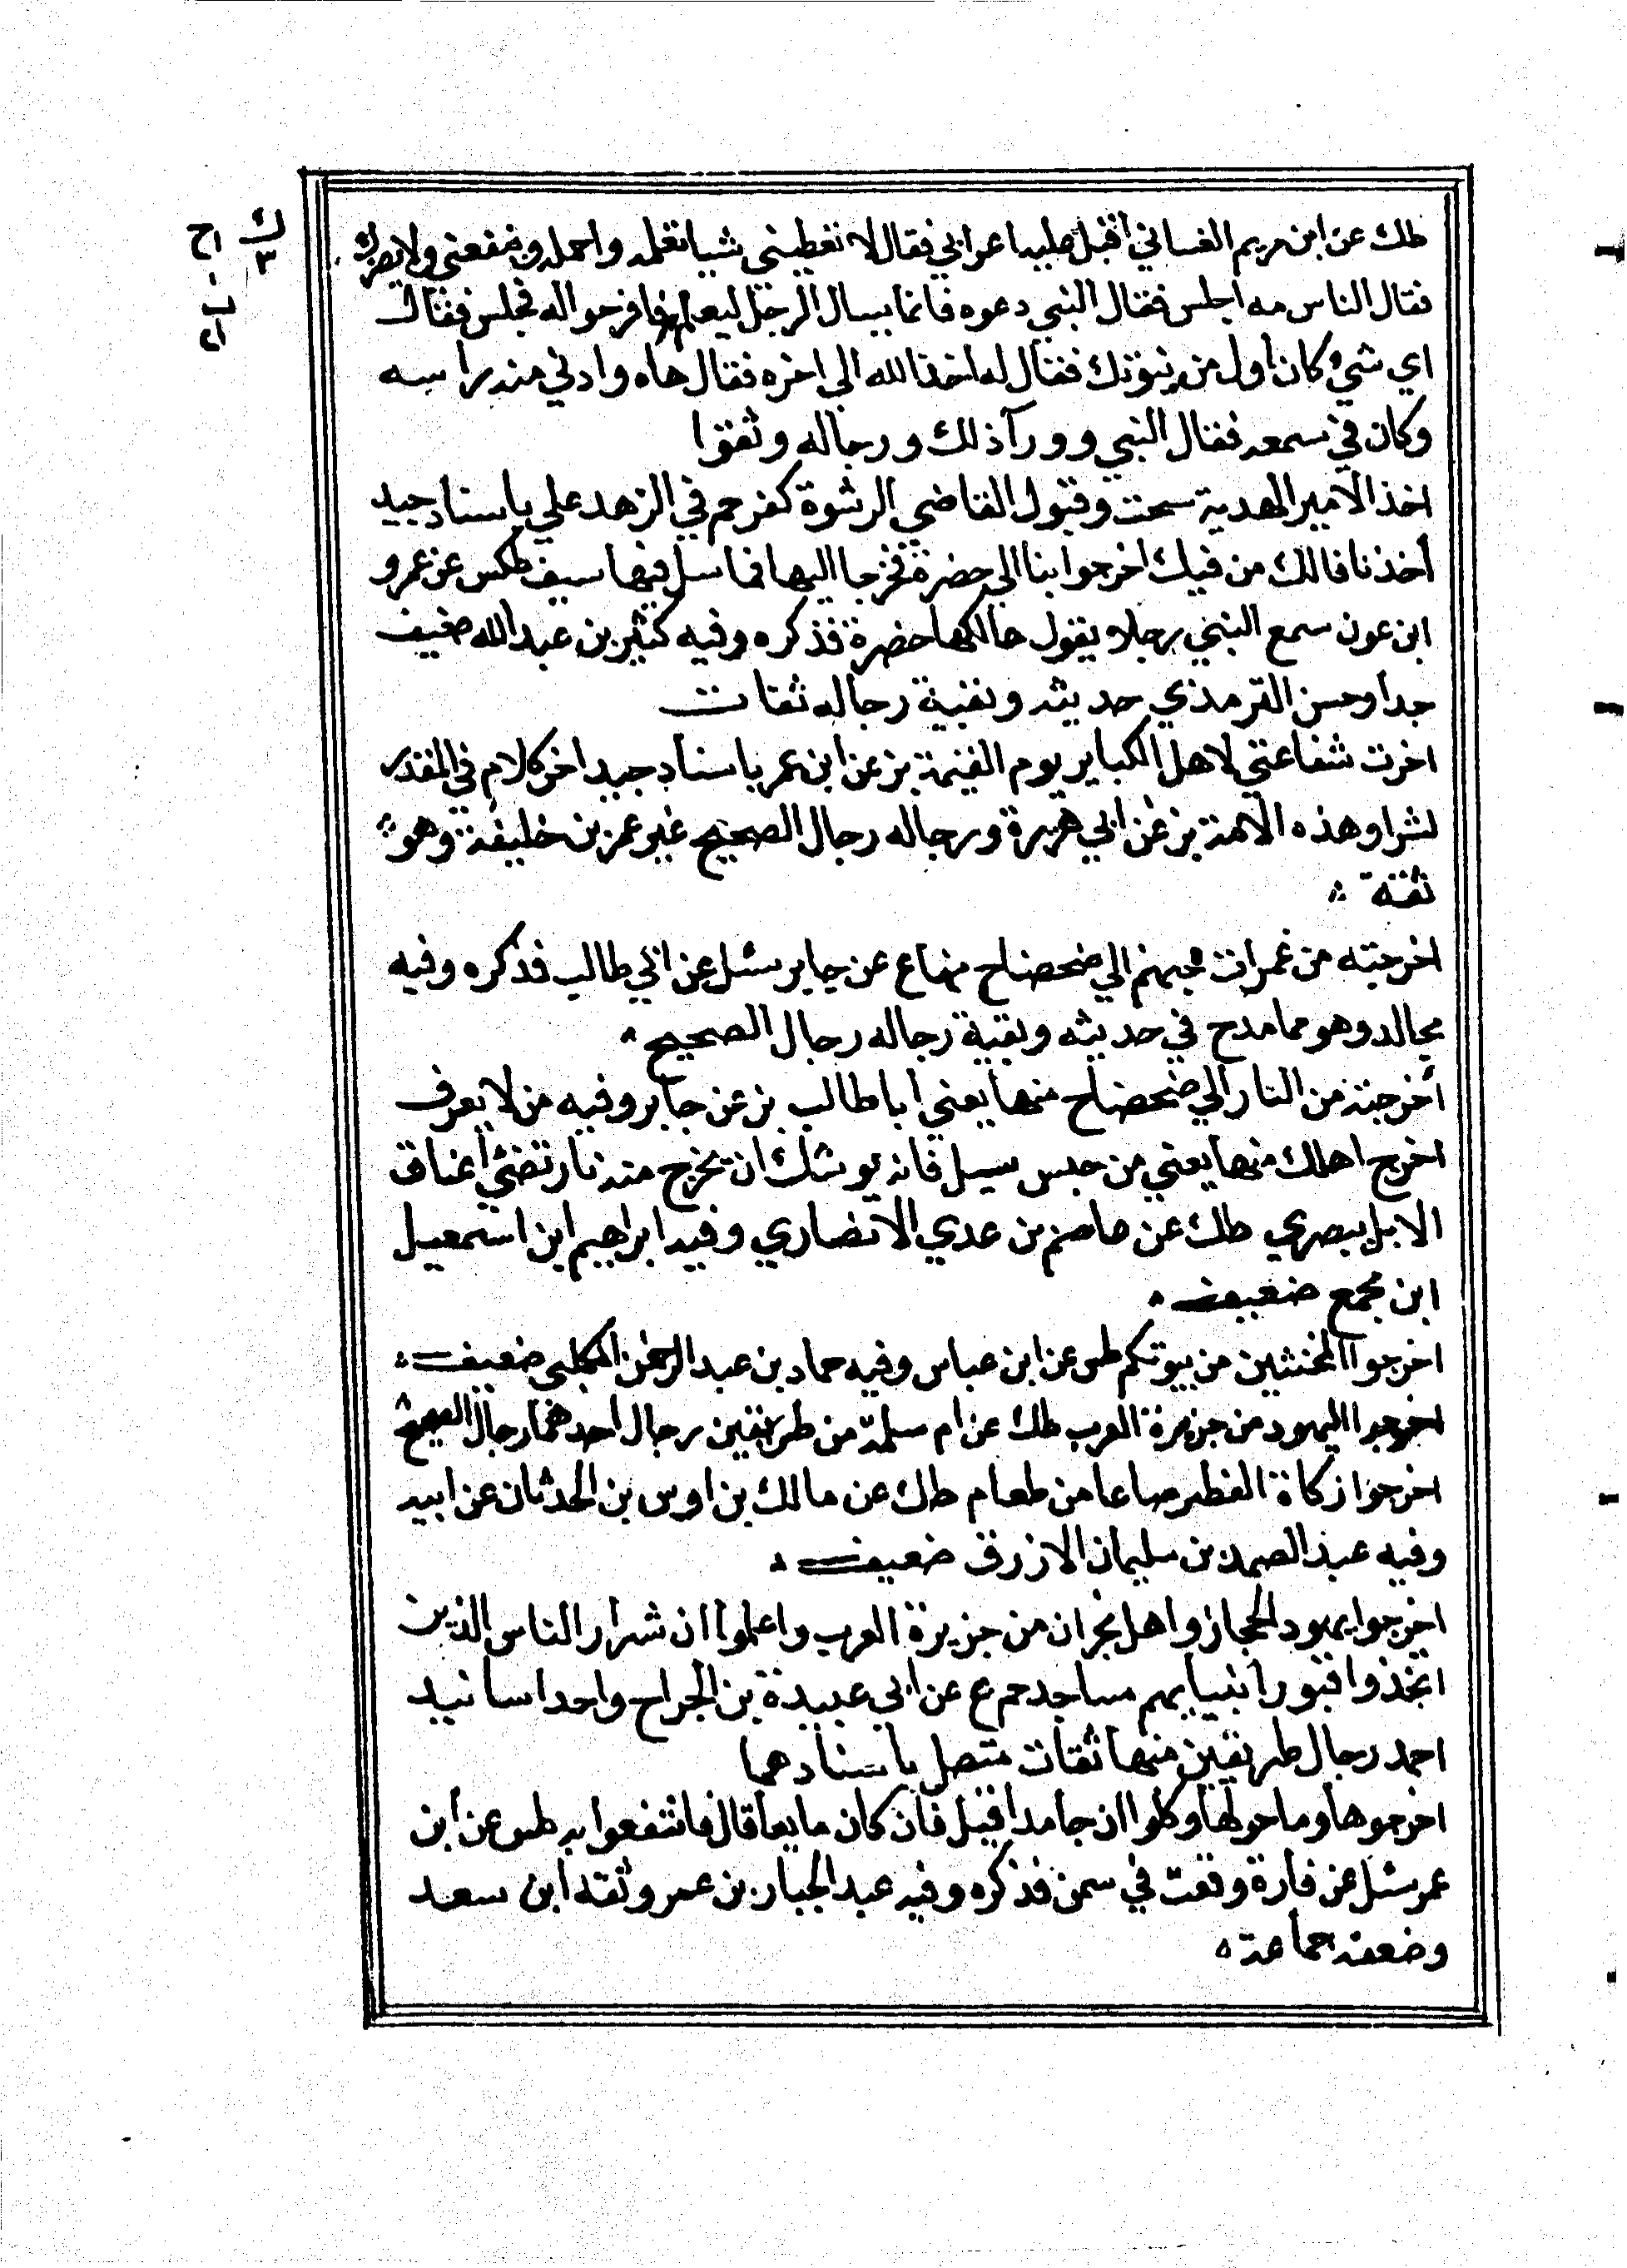 طك عن ابن مريم الغساني اقبل اعرابي فقال الا تعطيني شيا تعلمه واحمله وينفعني ولا يضرك
فقال الناس مه اجلس فقال النبي دعوه فانما يسال الرجل ليعلم فافرجوا له فجلس فقال
اي شي كان اول من نبوتك فقال له اخذ الله الى اخره فقال هاه وادني منه راسه
وكان في سمعه فقال النبي وورآ ذلك ورجاله وثقوا
اخذ الامير الهدية سحت وقبول القاضي الرشوة كفر حم في الزهد علي باسناد جيد
أخذنا فالك من فيك اخرجوا بنا الى خضرة فخرجا اليها فما سل فيها سيف طكس عن عمرو
ابن عون سمع النبي رجلا يقول هالكها خضرة فذكره وفيه كثير بن عبد الله ضعيف
جدا وحسن الترمذي حديثه وبقية رجاله ثقات
اخرت شفاعتي لاهل الكباير يوم القيمة بز عن ابن عمر باسناد جيد اخر كلام في القدر
لشرار هذه الامة بز عن ابي هريرة ورجاله رجال الصحيح غير عمر بن خليفة وهو
ثقة
اخرجته من غمرات جهنم الي ضحضاح منها ع عن جابر سئل عن ابي طالب فذكره وفيه
مجالد وهو مما مدح في حديثه وبقية رجاله رجال الصحيح
أخرجته من النار الي ضحضاح منها يعني أبا طالب بز عن جابر وفيه من لا يعرف
اخرج اهلك منها يعني من حبس سيل فانه يوشك ان تخرج منه نار تضئ أعناق
الابل ببصري طك عن عاصم بن عدي الانصاري وفيه ابراهيم ابن اسمعيل
ابن مجمع ضعيف
اخرجوا المخنثين من بيوتكم طس عن ابن عباس وفيه حماد بن عبد الرحمن الكلبي ضعيف
اخرجوا اليهود من جزيرة العرب طك عن ام سلمة من طريقين رجال احدهما رجال الصحيح
اخرجوا زكاة الفطر صاعا من طعام طك عن مالك بن اوس بن الحدثان عن ابيه
وفيه عبد الصمد بن سليمان الازرق ضعيف
اخرجوا يهود الحجاز واهل نجران من جزيرة العرب واعلموا ان شرار الناس الذين
اتخذوا قبور أنبيايهم مساجد حم ع عن ابي عبيدة بن الجراح واحد اسانيد
احمد رجال طريقين منها ثقات متصل باسنادهما
اخرجوها وما حولها وكلوا ان جامدا قيل فان كان مايعا قال فانتفعوا به طس عن ابن
عمر سئل عن فارة وقعت في سمن فذكره وفيه عبد الجبار بن عمر وثقه ابن سعد
وضعفه جماعة